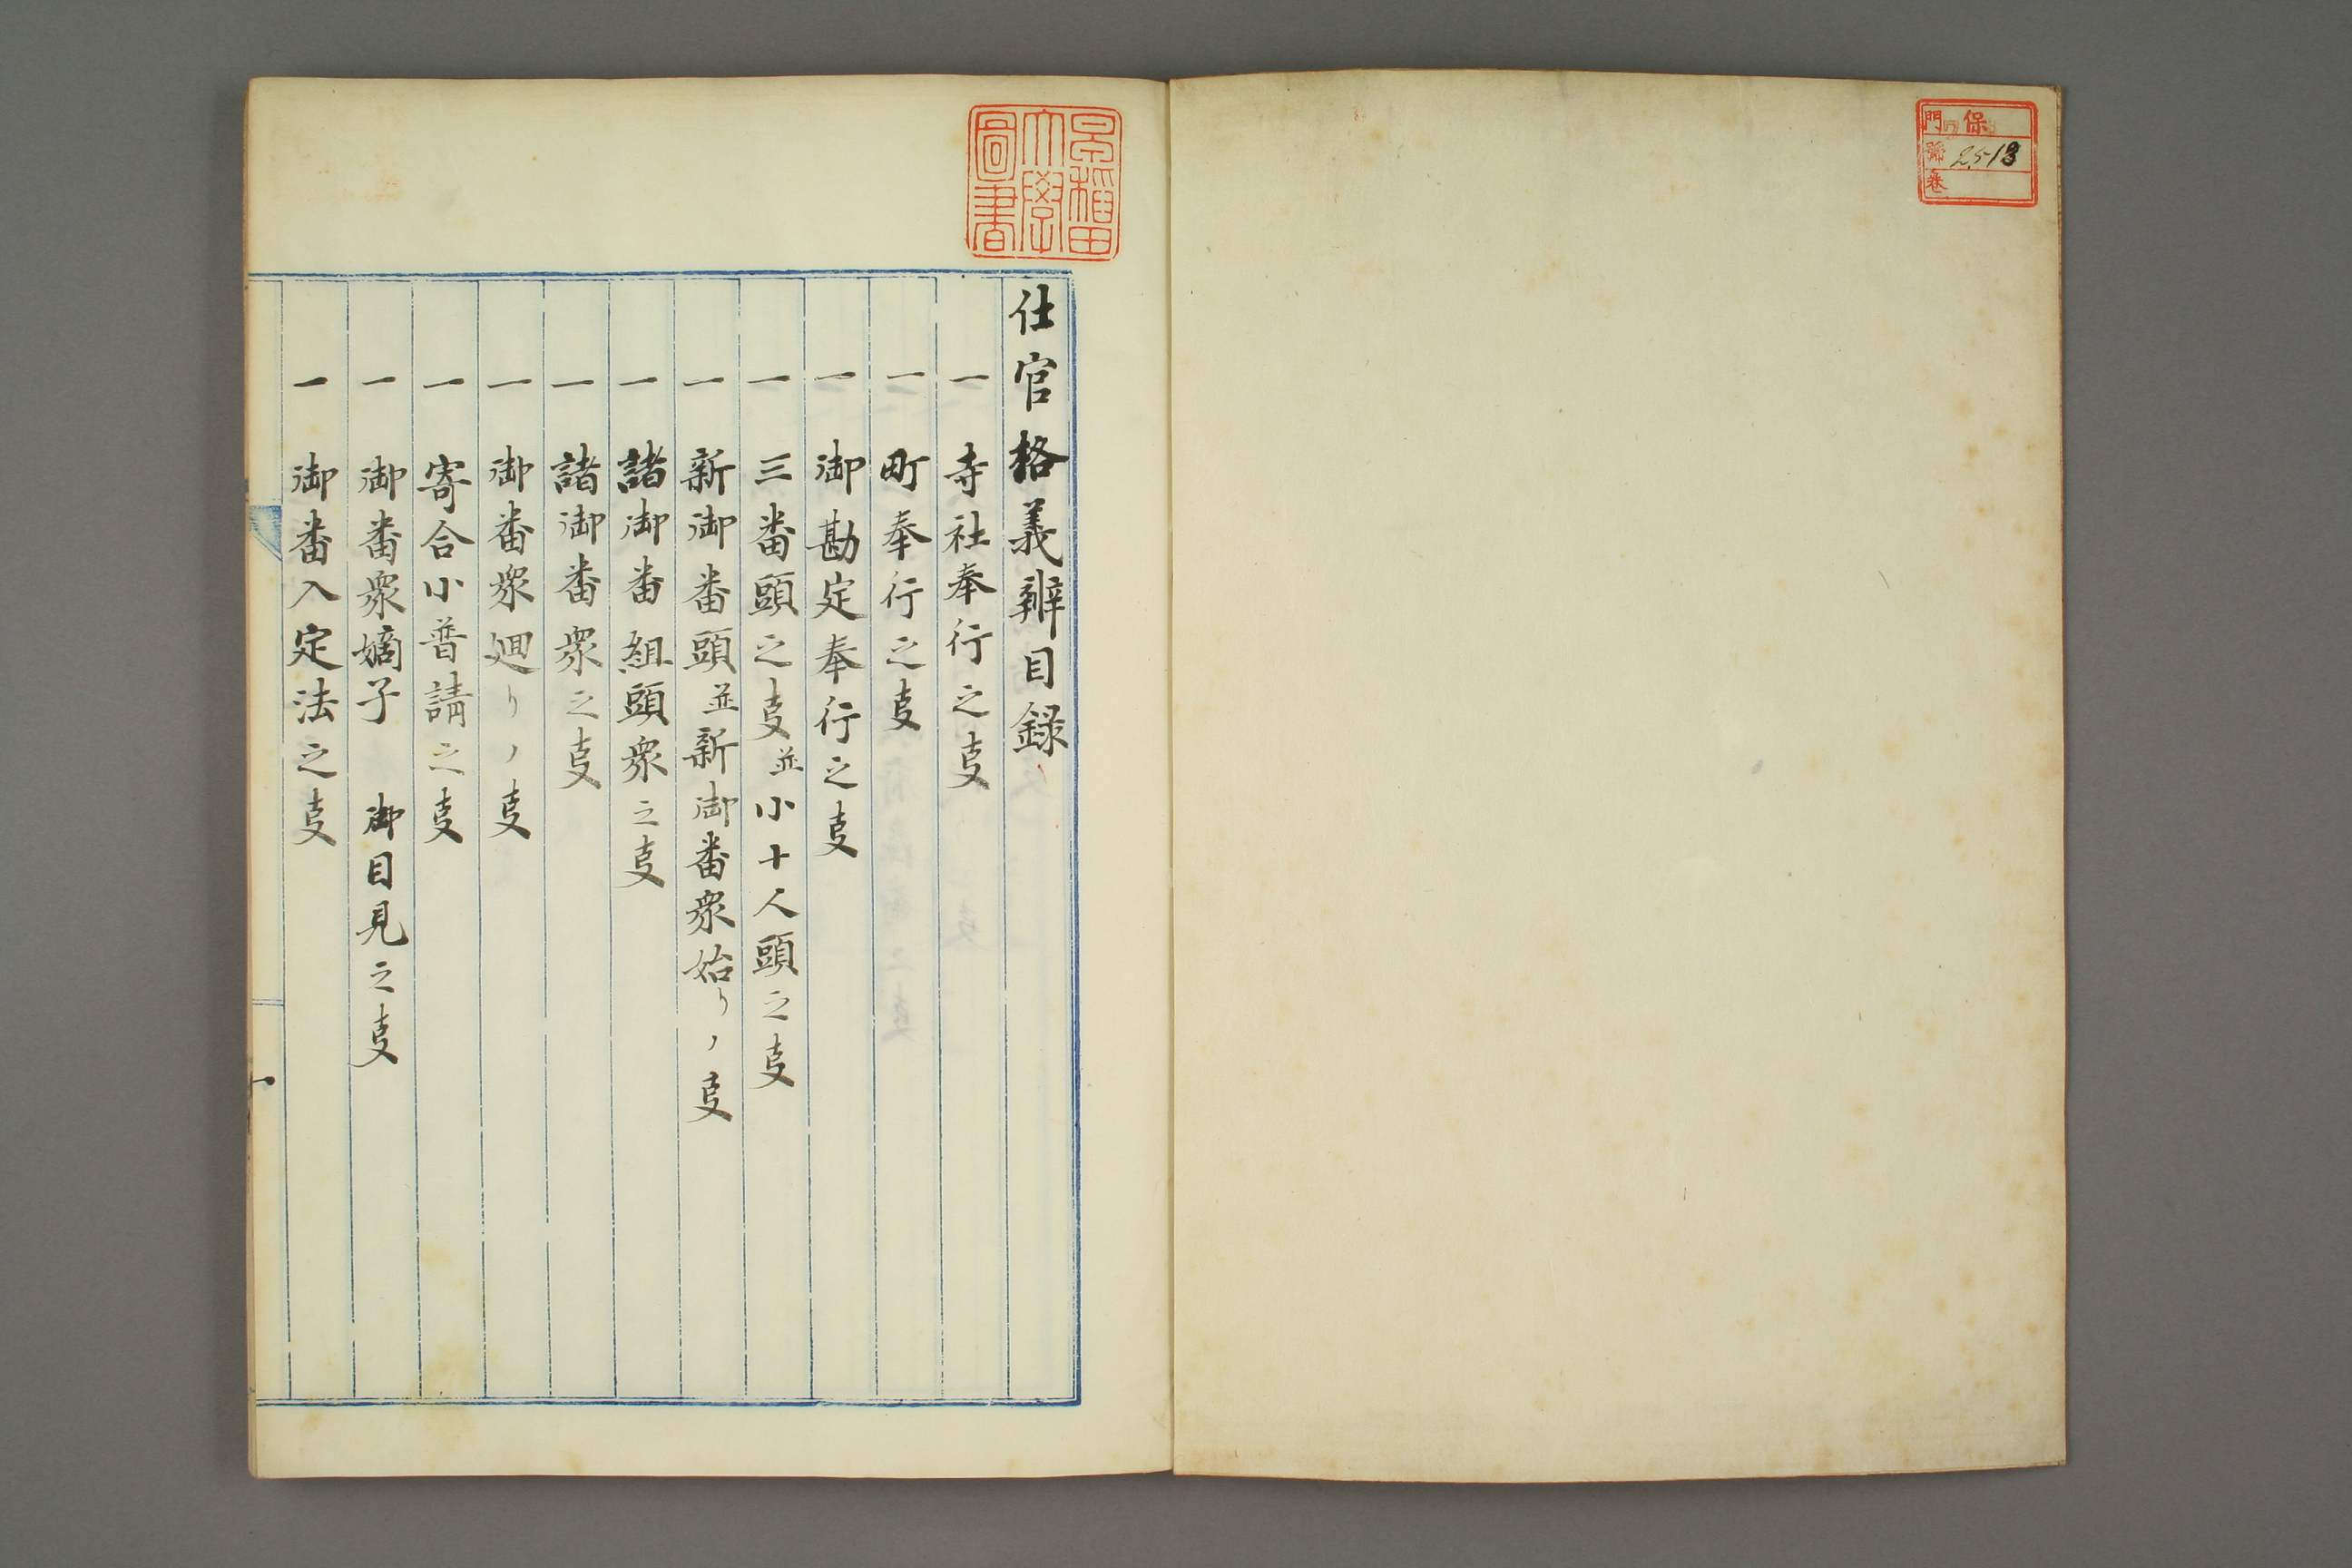 保
門
號 2513
卷
早稻田
大學
圖書
仕官格義辨目録
一 寺社奉行之㕝
一 町奉行之㕝
一 御勘定奉行之㕝
一 三番頭之㕝並小十人頭之㕝
一 新御番頭並新御番衆始リノ㕝
一 諸御番組頭衆之㕝
一 諸御番衆之㕝
一 御番衆廻リノ㕝
一 寄合小普請之㕝
一 御番衆嫡子 御目見之㕝
一 御番入定法之㕝
一